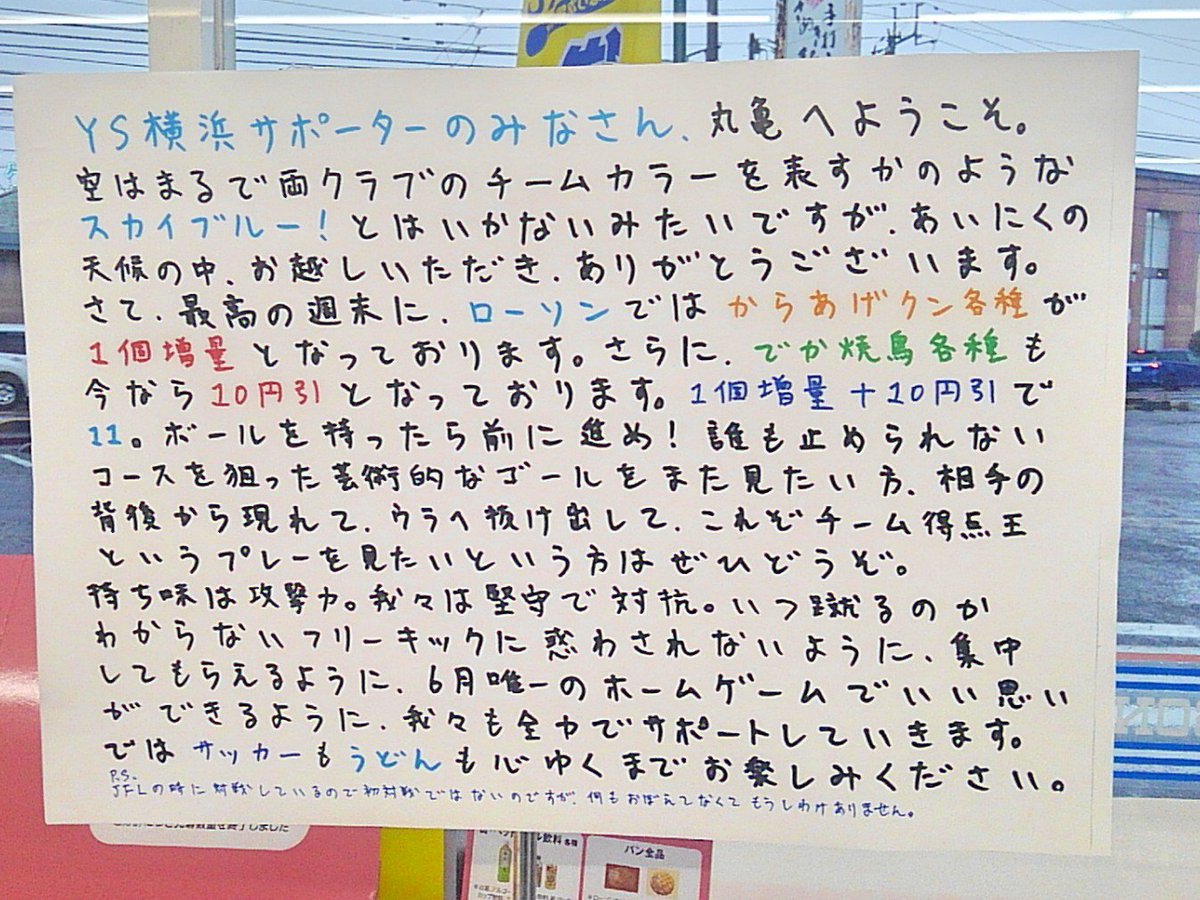 YS横浜サポーターのみなさん、丸亀へようこそ。
空はまるで両クラブのチームカラーを表すかのような
スカイブルー！とはいかないみたいですが、あいにくの
天候の中、お越しいただき、ありがとうございます。
さて、最高の週末に、ローソンではからあげクン各種が
1個増量となっております。さらに、でか焼鳥各種も
今なら10円引となっております。1個増量+10円引で
11。ボールを持ったら前に進め！誰も止められない
コースを狙った芸術的なゴールをまた見たい方、相手の
背後から現れて、ウラへ抜け出して、これぞチーム得点王
というプレーを見たいという方はぜひどうぞ。
持ち味は攻撃力。我々は堅守で対抗。いつ蹴るのか
わからないフリーキックに惑わされないように、集中
してもらえるように、6月唯一のホームゲームでいい思い
ができるように、我々も全力でサポートしていきます。
ではサッカーもうどんも心ゆくまでお楽しみください。
P.S.
JFLの時に対戦しているので初対戦ではないのですが、何もおぼえてなくてもうしわけありません。
パン全品